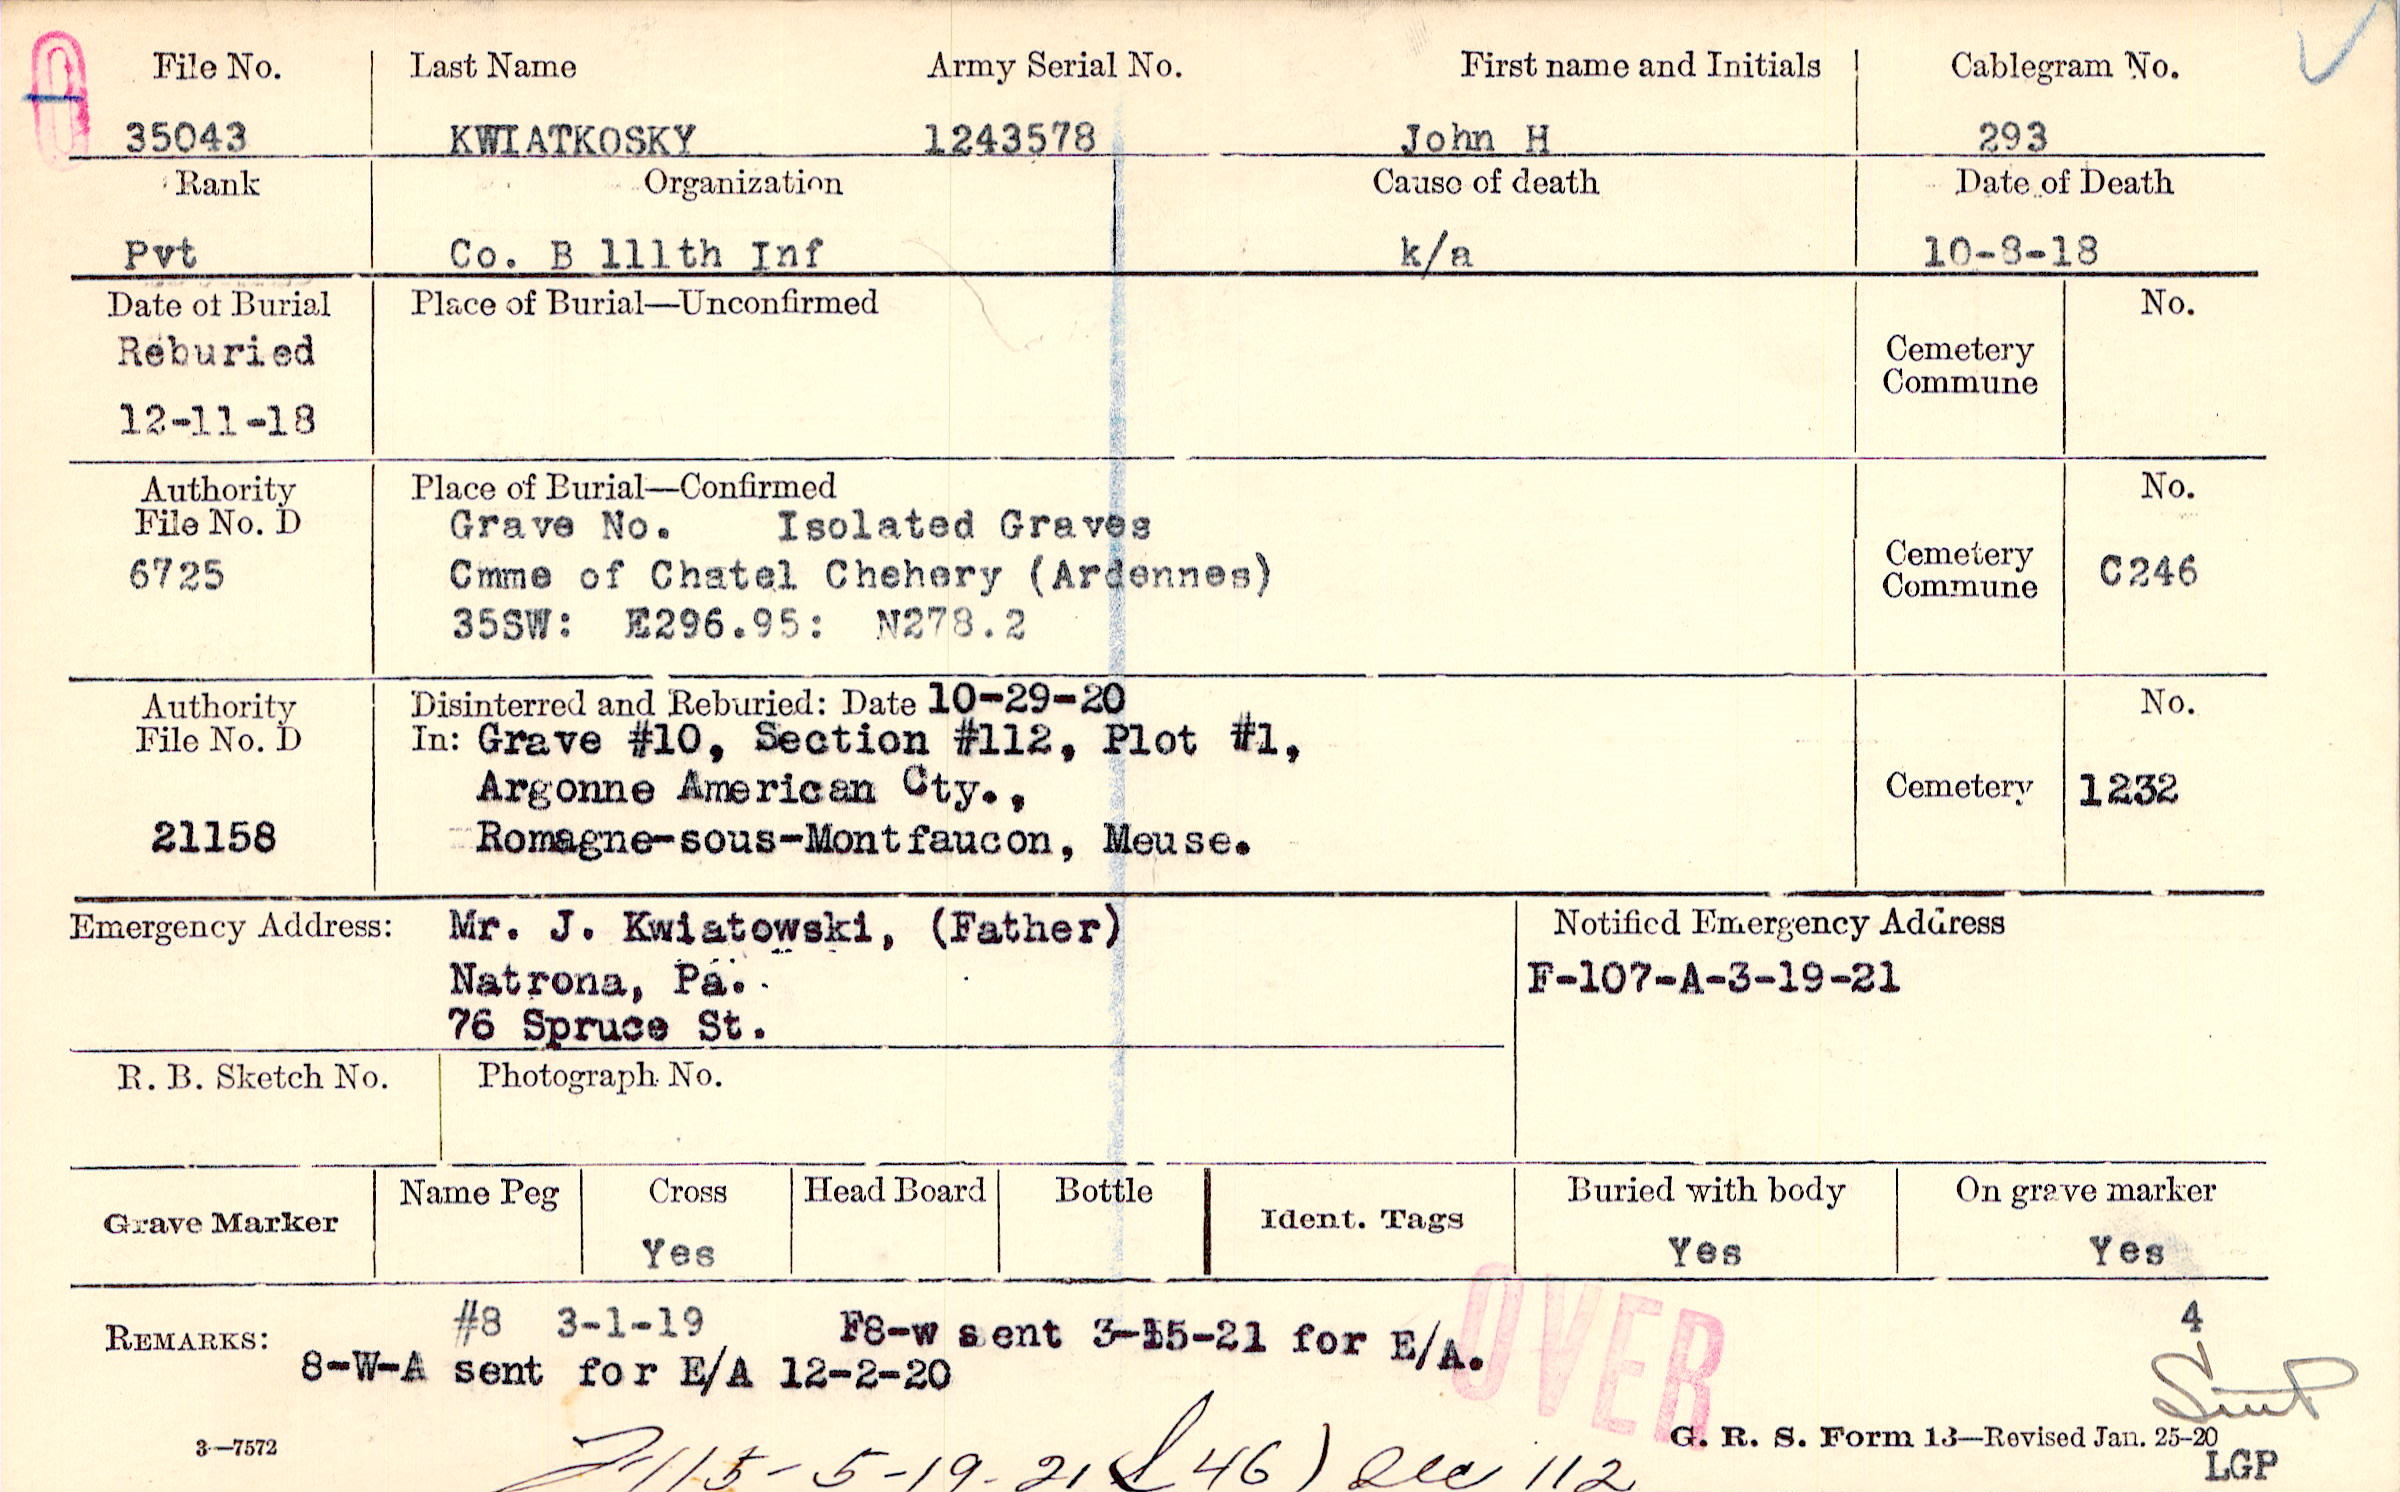 File No. Last Name Army Serial No. First name and Initials Cablegram No.
35043 KWIATKOSKY 1243578 John H 293
Rank Organization Cause of death Date of Death
Pvt Co. B 111th Inf k/a 10-8-18
Date of Burial Place of Burial—Unconfirmed No.
Reburied Cemetery
Commune
12-11-18
Authority Place of Burial—Confirmed No.
File No. D Grave No. Isolated Graves
6725 Cmme of Chatel Chehery (Ardennes) Cemetery Commune C246
35SW: E296.95: N278.2
Authority Disinterred and Reburied: Date 10-29-20 No.
File No. D In: Grave #10, Section #112, Plot #1,
Argonne American Cty., Cemetery 1232
21158 Romagne-sous-Montfaucon, Meuse.
Emergency Address: Mr. J. Kwiatowski, (Father) Notified Emergency Address
Natrona, Pa. F-107-A-3-19-21
76 Spruce St.
R. B. Sketch No. Photograph No.
Grave Marker Name Peg Cross Head Board Bottle Ident. Tags Buried with body On grave marker
Yes Yes Yes
REMARKS: #8 3-1-19 F8-w sent 3-15-21 for E/A. 4
8-W-A sent for E/A 12-2-20
OVER
3—7572 G. R. S. Form 13—Revised Jan. 25-20
LGP
115-5-19-21 (46) Sec 112